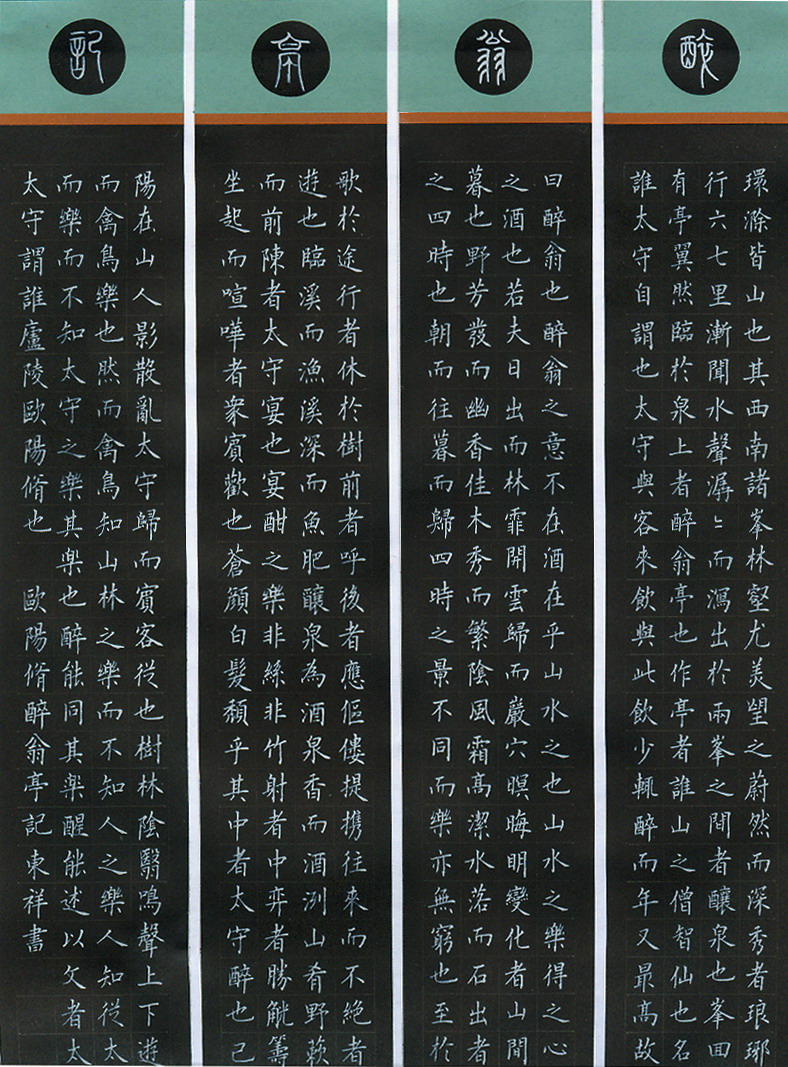 醉
環滁皆山也其西南諸峯林壑尤美望之蔚然而深秀者琅琊
行六七里漸聞水聲潺〻而瀉出於兩峯之間者釀泉也峯囬
有亭翼然臨於泉上者醉翁亭也作亭者誰山之僧智仙也名
誰太守自謂也太守與客來飲與此飲少輒醉而年又最高故
翁
曰醉翁也醉翁之意不在酒在乎山水之也山水之樂得之心
之酒也若夫日出而林霏開雲歸而巖穴暝晦明變化者山間
暮也野芳發而幽香佳木秀而繁陰風霜高潔水落而石出者
之四時也朝而往暮而歸四時之景不同而樂亦無窮也至於
亭
歌於途行者休於樹前者呼後者應傴僂提携往來而不絶者
遊也臨溪而漁溪深而魚肥釀泉為酒泉香而酒洌山肴野蔌
而前陳者太守宴也宴酣之樂非絲非竹射者中弈者勝觥籌
坐起而喧嘩者衆賓歡也蒼顏白髮頹乎其中者太守醉也已
記
陽在山人影散亂太守歸而賓客從也樹林陰翳鳴聲上下遊
而禽鳥樂也然而禽鳥知山林之樂而不知人之樂人知從太
而樂而不知太守之樂其樂也醉能同其樂醒能述以文者太
太守謂誰廬陵歐陽脩也 歐陽脩醉翁亭記東祥書